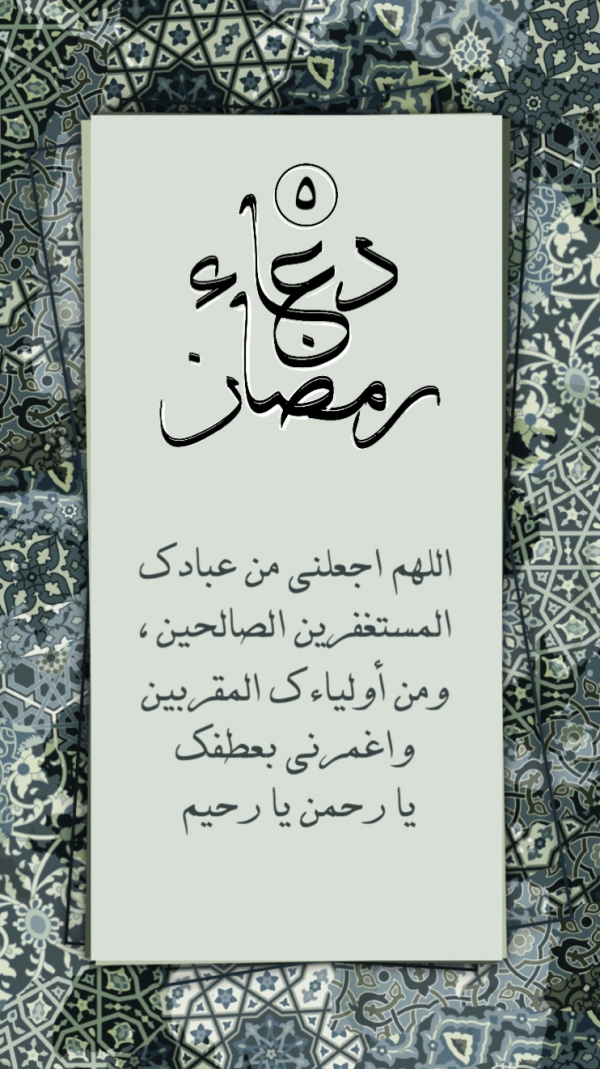 ٥
دعاء
رمضان
اللهم اجعلنى من عبادک
المستغفرين الصالحين ،
ومن أولياءک المقربين
واغمرنى بعطفک
يا رحمن يا رحيم